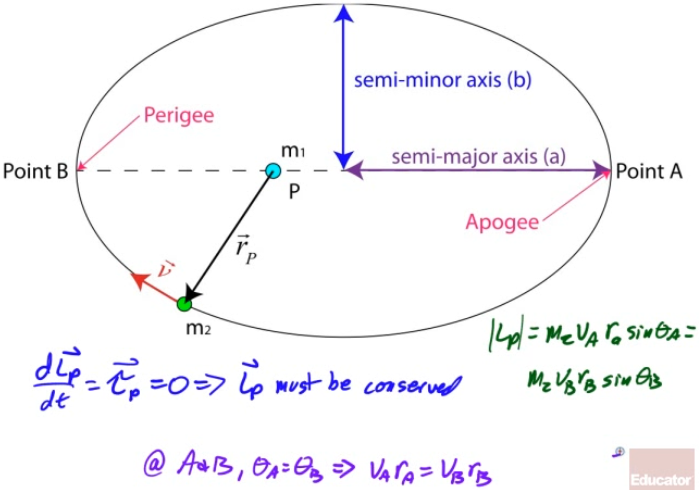 semi-minor axis (b)
Perigee
m₁
semi-major axis (a)
Point B
Point A
P
Apogee
r⃗_P
v⃗
m₂
|L_p| = m₂ v_A r_a sin θ_A =
m₂ v_B r_B sin θ_B
dL⃗_p/dt = τ⃗_p = 0 ⇒ L⃗_p must be conserved
@ A&B, θ_A = θ_B ⇒ v_A r_A = v_B r_B
Educator